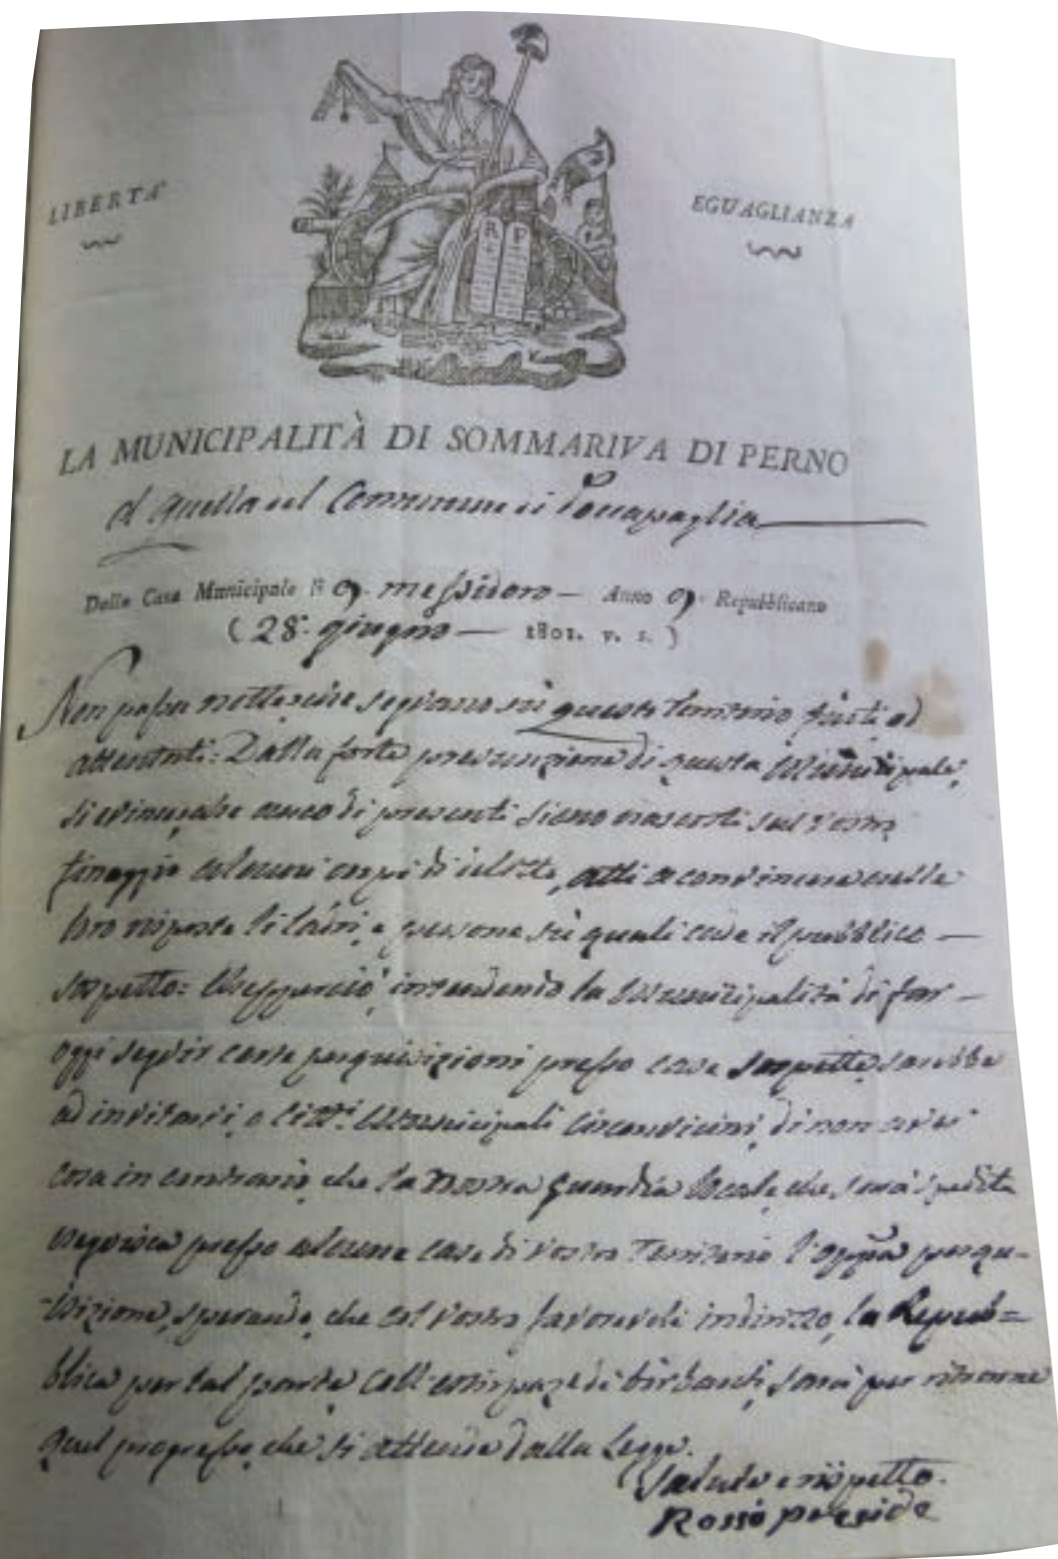 LIBERTA'
EGUAGLIANZA
R P
LA MUNICIPALITÀ DI SOMMARIVA DI PERNO
A quella del Commune di Poccapaglia
Dalla Casa Municipale li 9. messidoro — Anno 9. Repubblicano
( 28. giugno — 1801. v. s. )
Non passa notte, che seguano su questo territorio furti ed
attentati: Dalla forte presunzione di questa Municipale,
si evince, che anco di presenti siano nascosti sul vostro
finaggio alcuni corpi di delitto, atti a convincere nelle
loro risposte li ladri, e persone su quali cade il pubblico —
sospetto: Eppercio' intendendo la Municipalità di far —
oggi seguir certe perquisizioni presso case sospette, sarebbe
ad invitarvi, o Citt.i Municipali circonvicini, di non aver
cosa in contrario, che la nostra guardia locale, che sarà spedita
eseguisca presso alcune case di vostro Territorio l'opp.na perqui-
sizione, sperando, che col vostro favorevole indirizzo, la Repub=
blica per tal parte coll'estirpaz.e di birbanti, sarà per ritrarne
quel progresso, che si attende dalla Legge.
Salute e rispetto.
Rosso preside